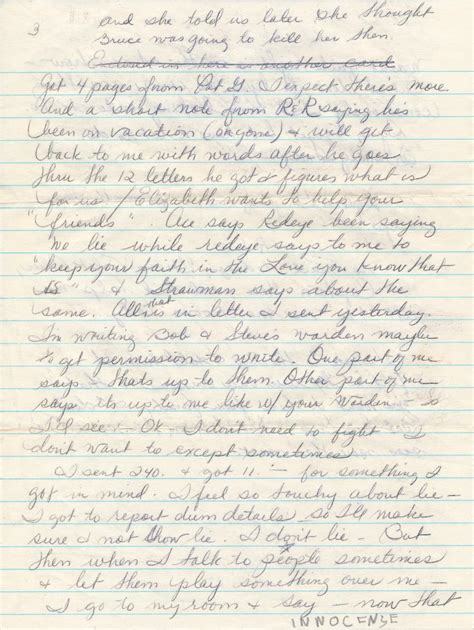 3 and she told us later she thought
Bruce was going to kill her then.
Extend in here is another card
Got 4 pages from Pat G. I expect there's more
And a short note from R&R saying hes
been on vacation (anyone) & will get
back to me with words after he goes
thru the 12 letters he got & figures what is
for us / Elizabeth wants to help your
"friends". Ace says Redeye been saying
We lie while redeye says to me to
"keep your faith in the Love you know that
is" & Strawman says about the
same. All that in letter I sent yesterday.
I'm writing Bob & Steve's warden maybe
to get permission to write. One part of me
says - thats up to them. Other part of me
says its up to me like w/ your Warden - So
I'll see! - OK - I dont need to fight I
dont want to except sometimes
I sent 240. & got 11. - for something I
got in mind. I feel so touchy about lie -
I got to report dum details so I'll make
sure I not lie. I dont lie - But
then when I talk to people sometimes
& let them play something over me -
I go to my room & say - now that
INNOCENSE